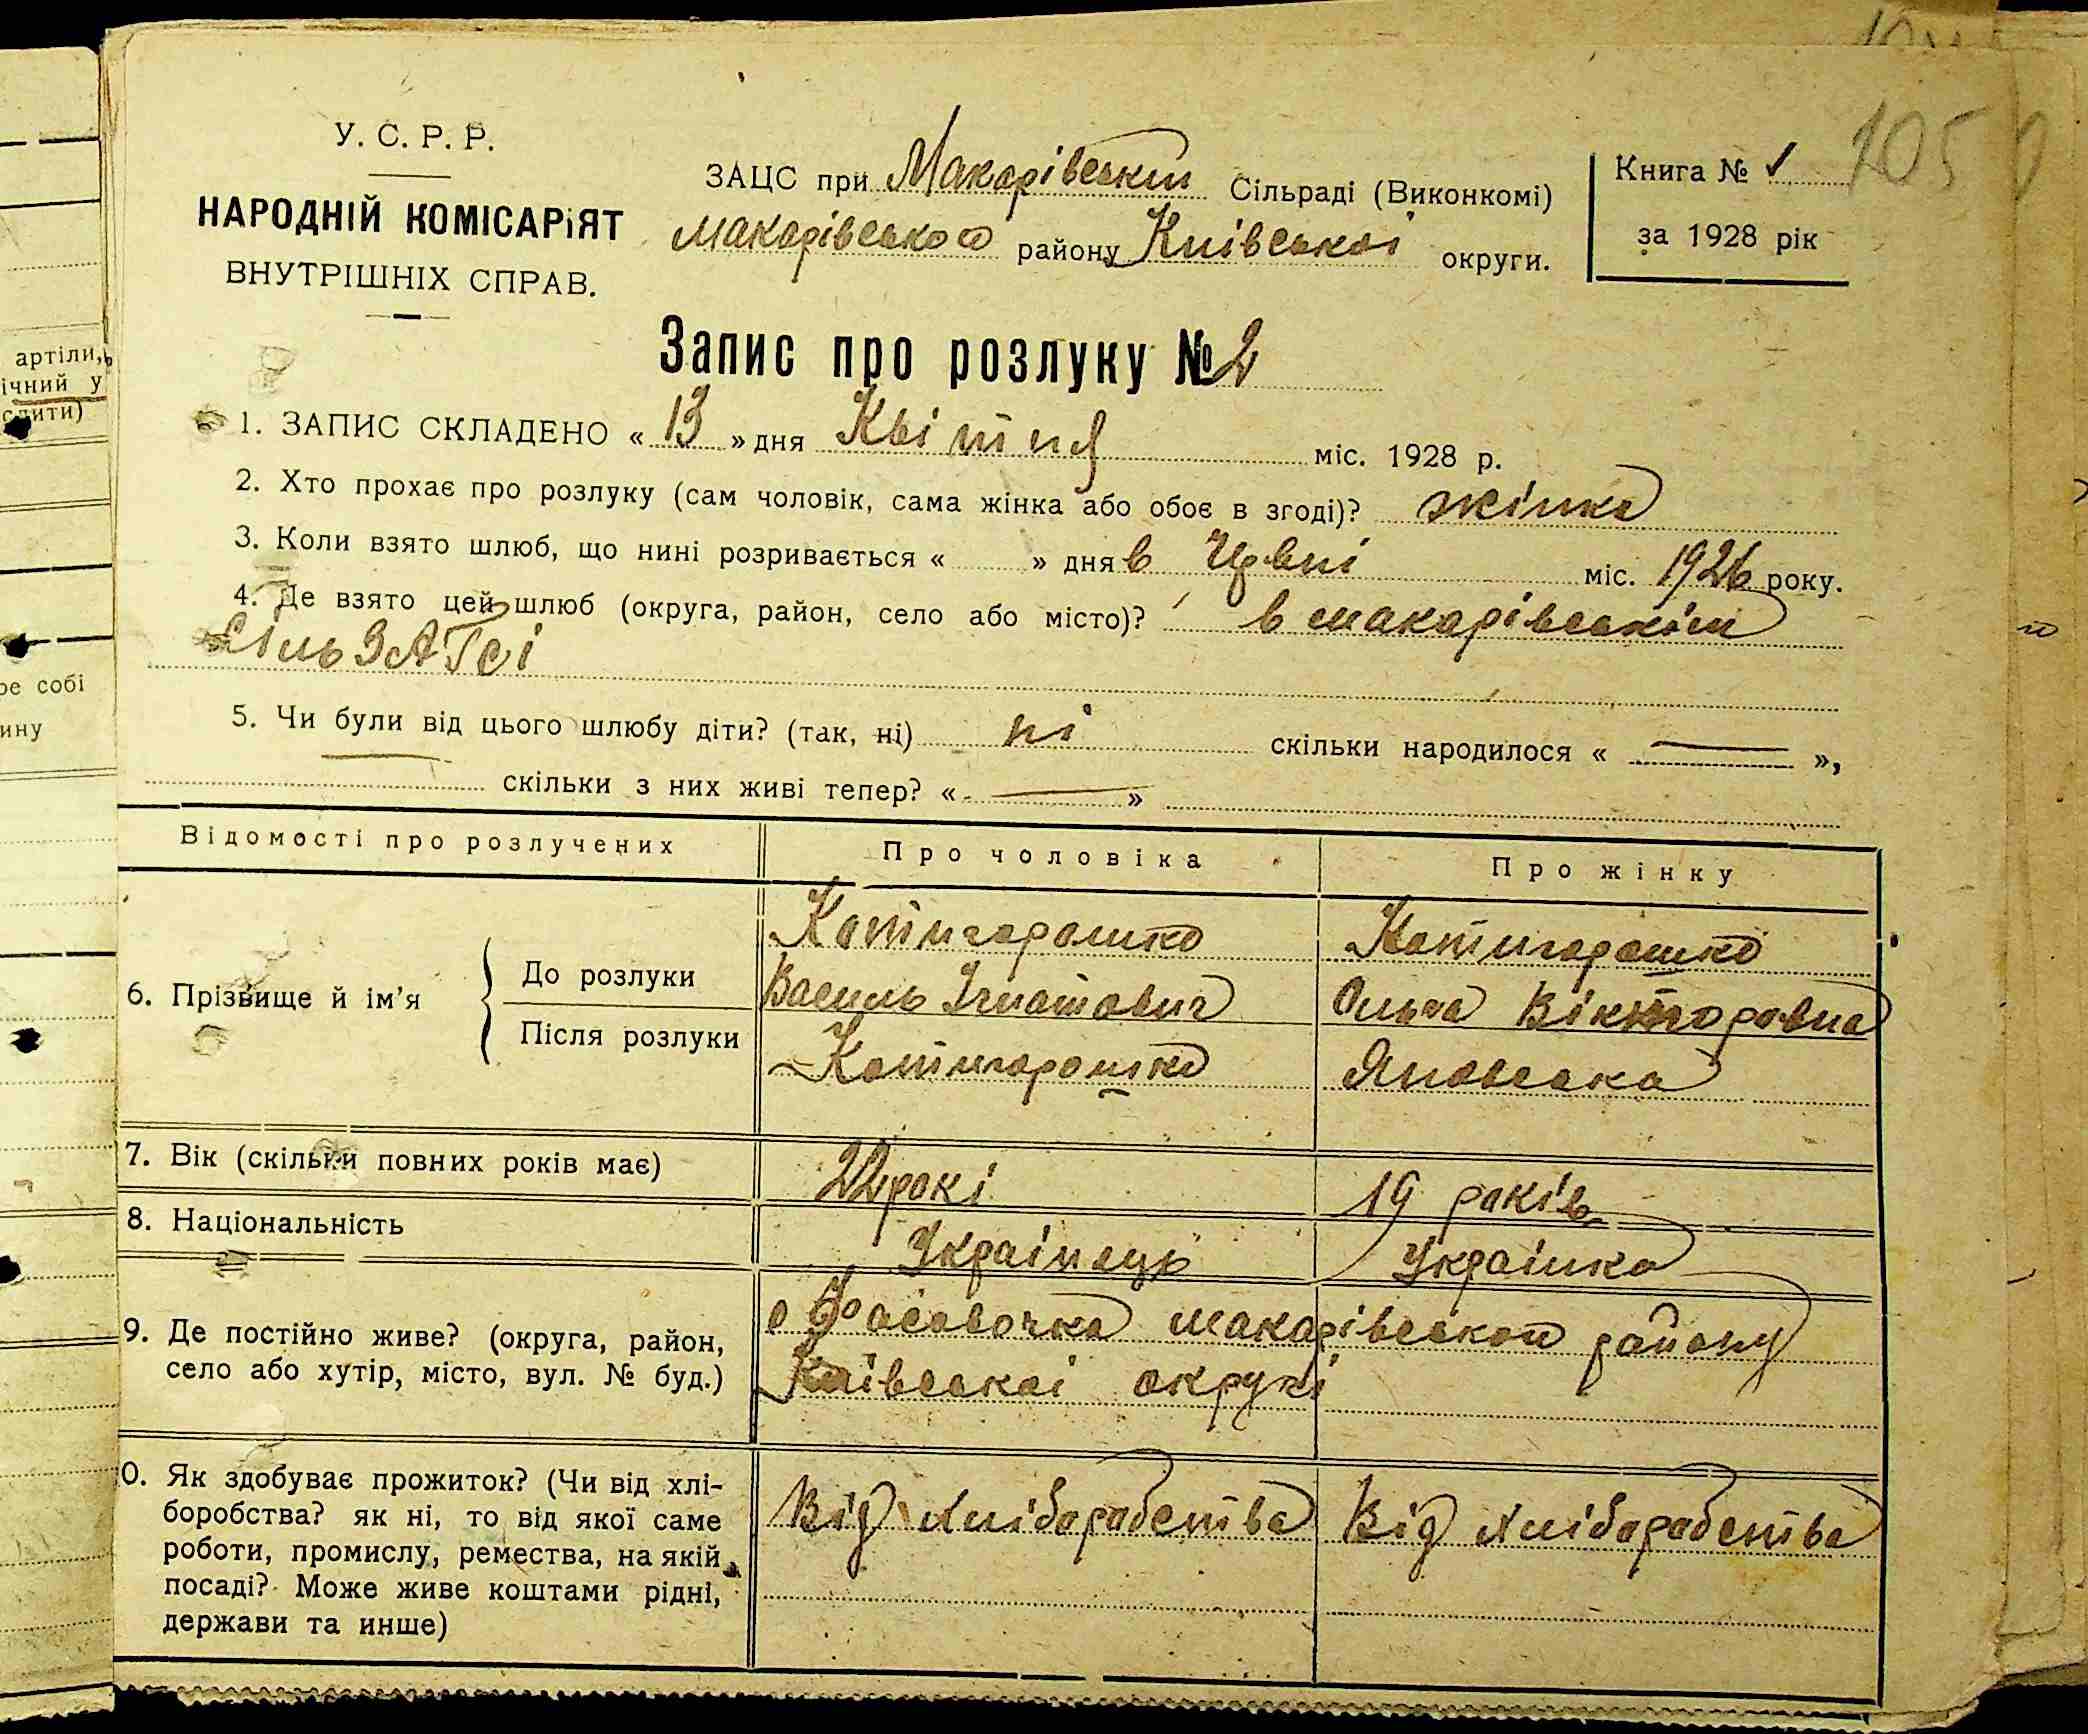 105
У. С. Р. Р.
НАРОДНІЙ КОМІСАРіЯТ
ВНУТРІШНІХ СПРАВ.
ЗАЦС при Макарівській Сільраді (Виконкомі)
Макарівського району Київськоі округи.
Книга № 1
за 1928 рік
Запис про розлуку № 2
1. ЗАПИС СКЛАДЕНО « 13 » дня Квітня міс. 1928 р.
2. Хто прохає про розлуку (сам чоловік, сама жінка або обоє в згоді)? жінка
3. Коли взято шлюб, що нині розривається « » дня в Червні міс. 1926 року.
4. Де взято цей шлюб (округа, район, село або місто)? в макарівськім
СільЗАГСі
5. Чи були від цього шлюбу діти? (так, ні) ні скільки народилося « — »,
скільки з них живі тепер? « — »
Відомості про розлучених
Про чоловіка
Про жінку
6. Прізвище й ім'я
До розлуки
Після розлуки
Котигорошко
Василь Ігнатович
Котигорошко
Котигорошко
Ольга Вікторовна
Яновська
7. Вік (скільки повних років має)
22 рокі
19 років
8. Національність
Украінець
Украінка
9. Де постійно живе? (округа, район,
село або хутір, місто, вул. № буд.)
с Фасовочка макарівського району
Київськоі округі
0. Як здобуває прожиток? (Чи від хлі-
боробства? як ні, то від якої саме
роботи, промислу, ремества, на якій
посаді? Може живе коштами рідні,
держави та инше)
Від хліборобства
Від хліборобства
артіли,
ічний у
слити)
ре собі
ину